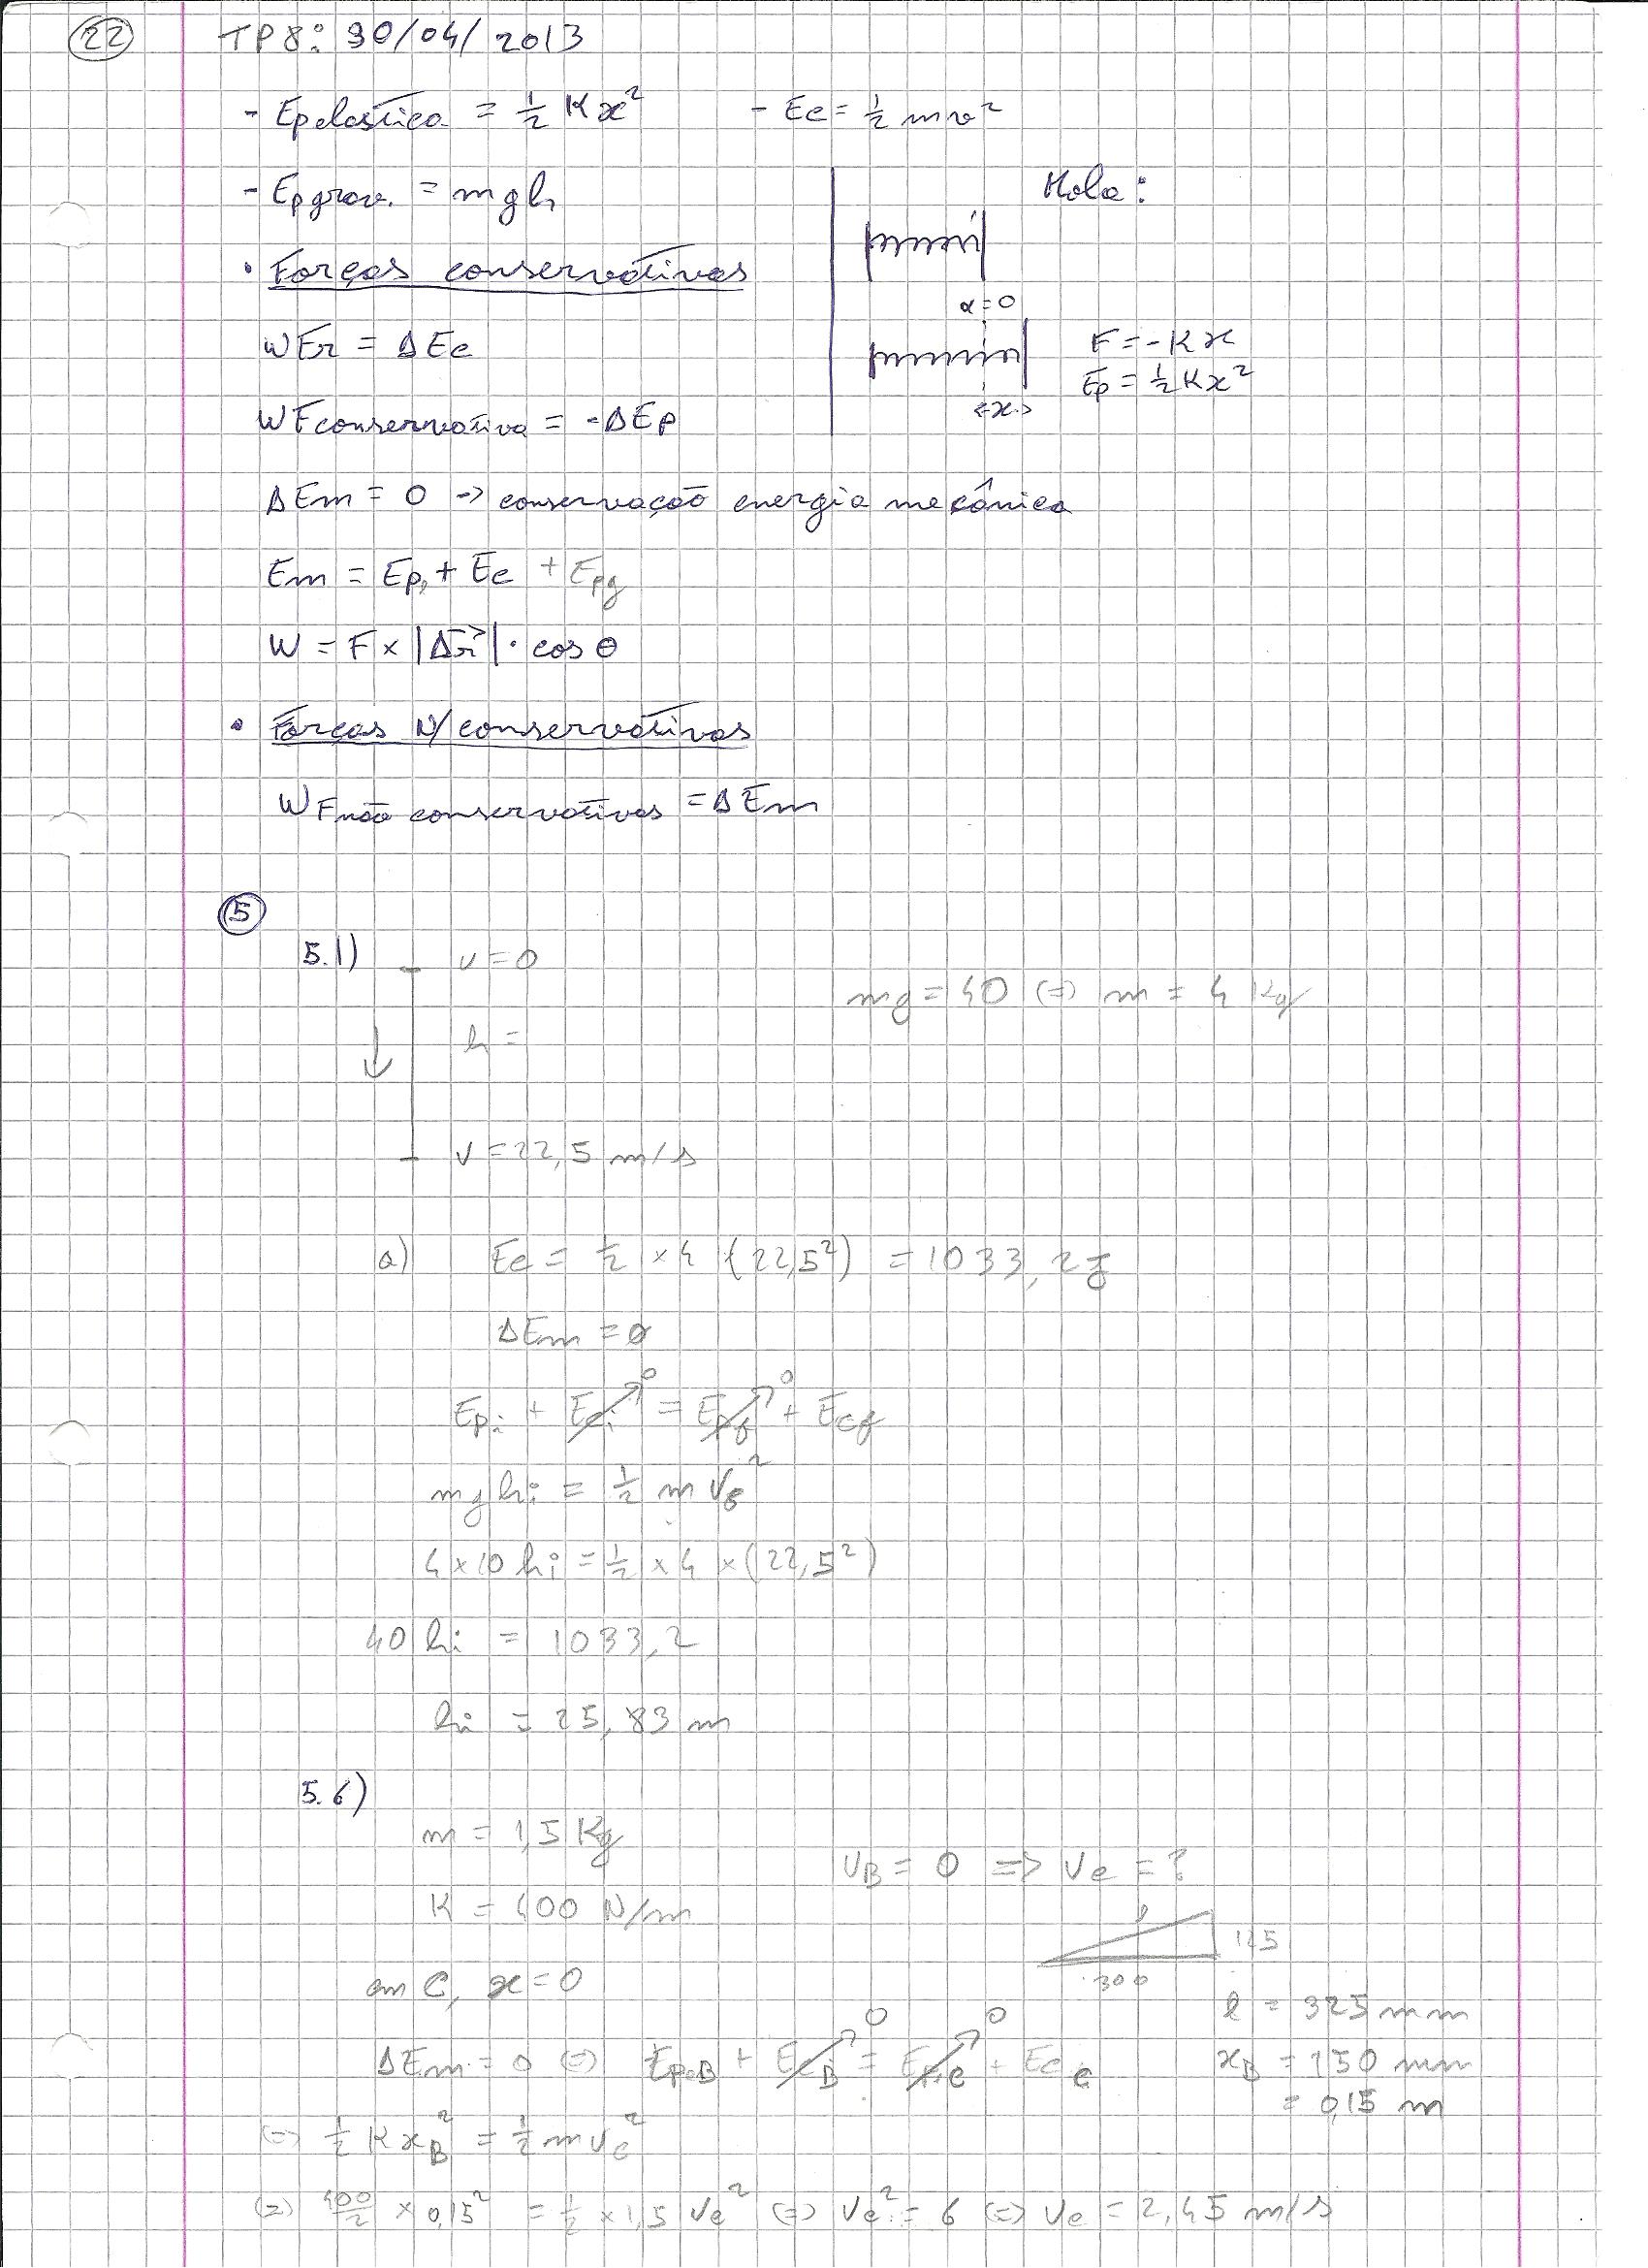 22 TP8: 30/04/2013
- Ep elastica = 1/2 K x² - Ec = 1/2 m v²
- Ep grav. = m g h
Mola:
• Forças conservativas
x = 0
W Fr = Δ Ec
F = - K x
Ep = 1/2 K x²
<-x->
W F conservativa = - Δ Ep
Δ Em = 0 -> conservação energia mecânica
Em = Ep, + Ec + Epg
W = F × |Δr⃗| · cos θ
• Forças N/ conservativas
W F não conservativas = Δ Em
5
5.1) v = 0
mg = 40 (=) m = 4 Kg
h =
v = 22,5 m/s
a) Ec = 1/2 × 4 (22,5²) = 1033,2 J
Δ Em = 0
Epi + Eci→0 = Epf→0 + Ecf
m g hi = 1/2 m vf²
4 × 10 hi = 1/2 × 4 × (22,5²)
40 hi = 1033,2
hi = 25,83 m
5.6)
m = 1,5 Kg
vB = 0 => vc = ?
K = 400 N/m
l
125
300
em C, x = 0
l = 325 mm
Δ Em = 0 (=) EpeB + EcB→0 = EpeC→0 + EcC
xB = 150 mm
= 0,15 m
(=) 1/2 K xB² = 1/2 m vc²
(=) 400/2 × 0,15² = 1/2 × 1,5 vc² (=) vc² = 6 (=) vc = 2,45 m/s